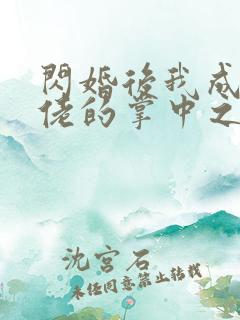 閃婚後我成
佬的掌中之
沈宮石
未经同意禁止转载